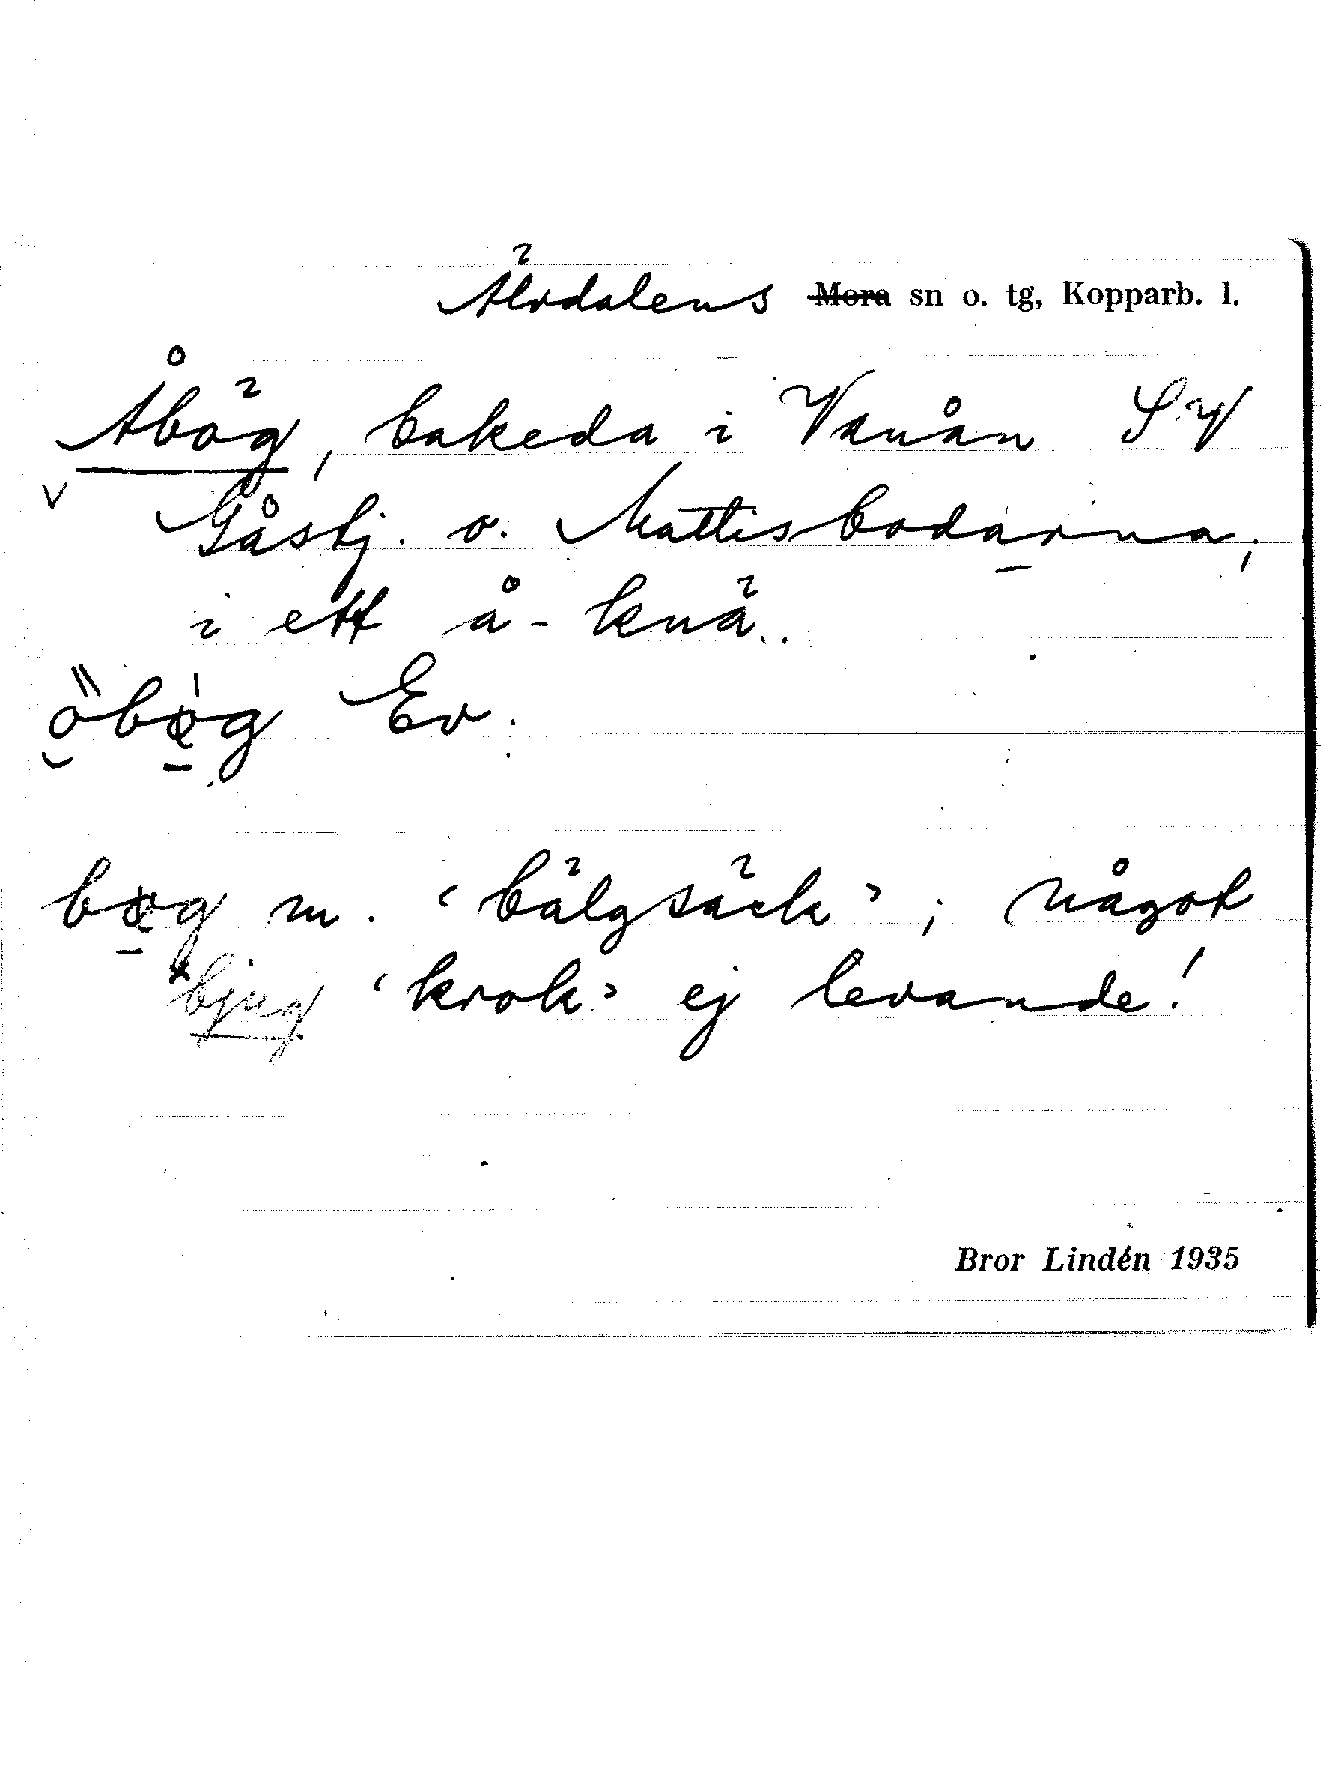 Älvdalens Mora sn o. tg, Kopparb. l.
Åbög, bakeda i Vanån SV
Gåstj. o. Mattisbodarna,
i ett å-knä.
Ev.
m. ‹bälgsäck›; något
*bjug ‹krok› ej levande!
Bror Lindén 1935